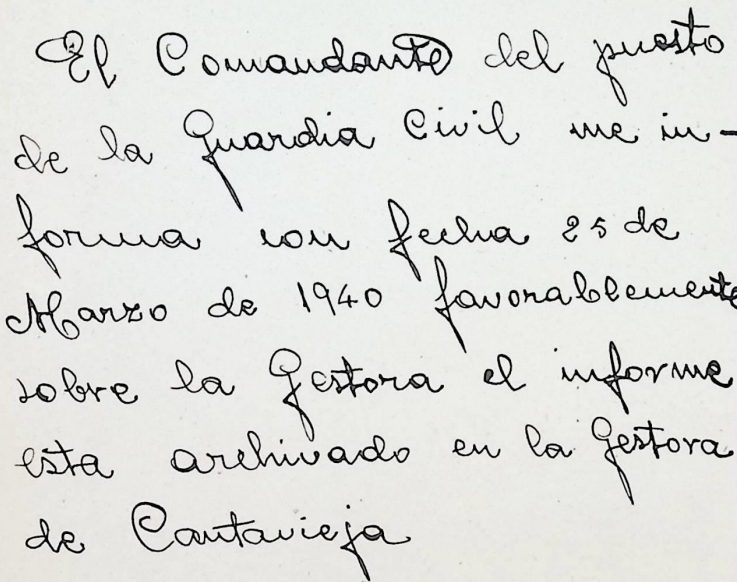 El Comandante del puesto
de la Guardia Civil me in-
forma con fecha 25 de
Marzo de 1940 favorablemente
sobre la Gestora el informe
esta archivado en la Gestora
de Cantavieja